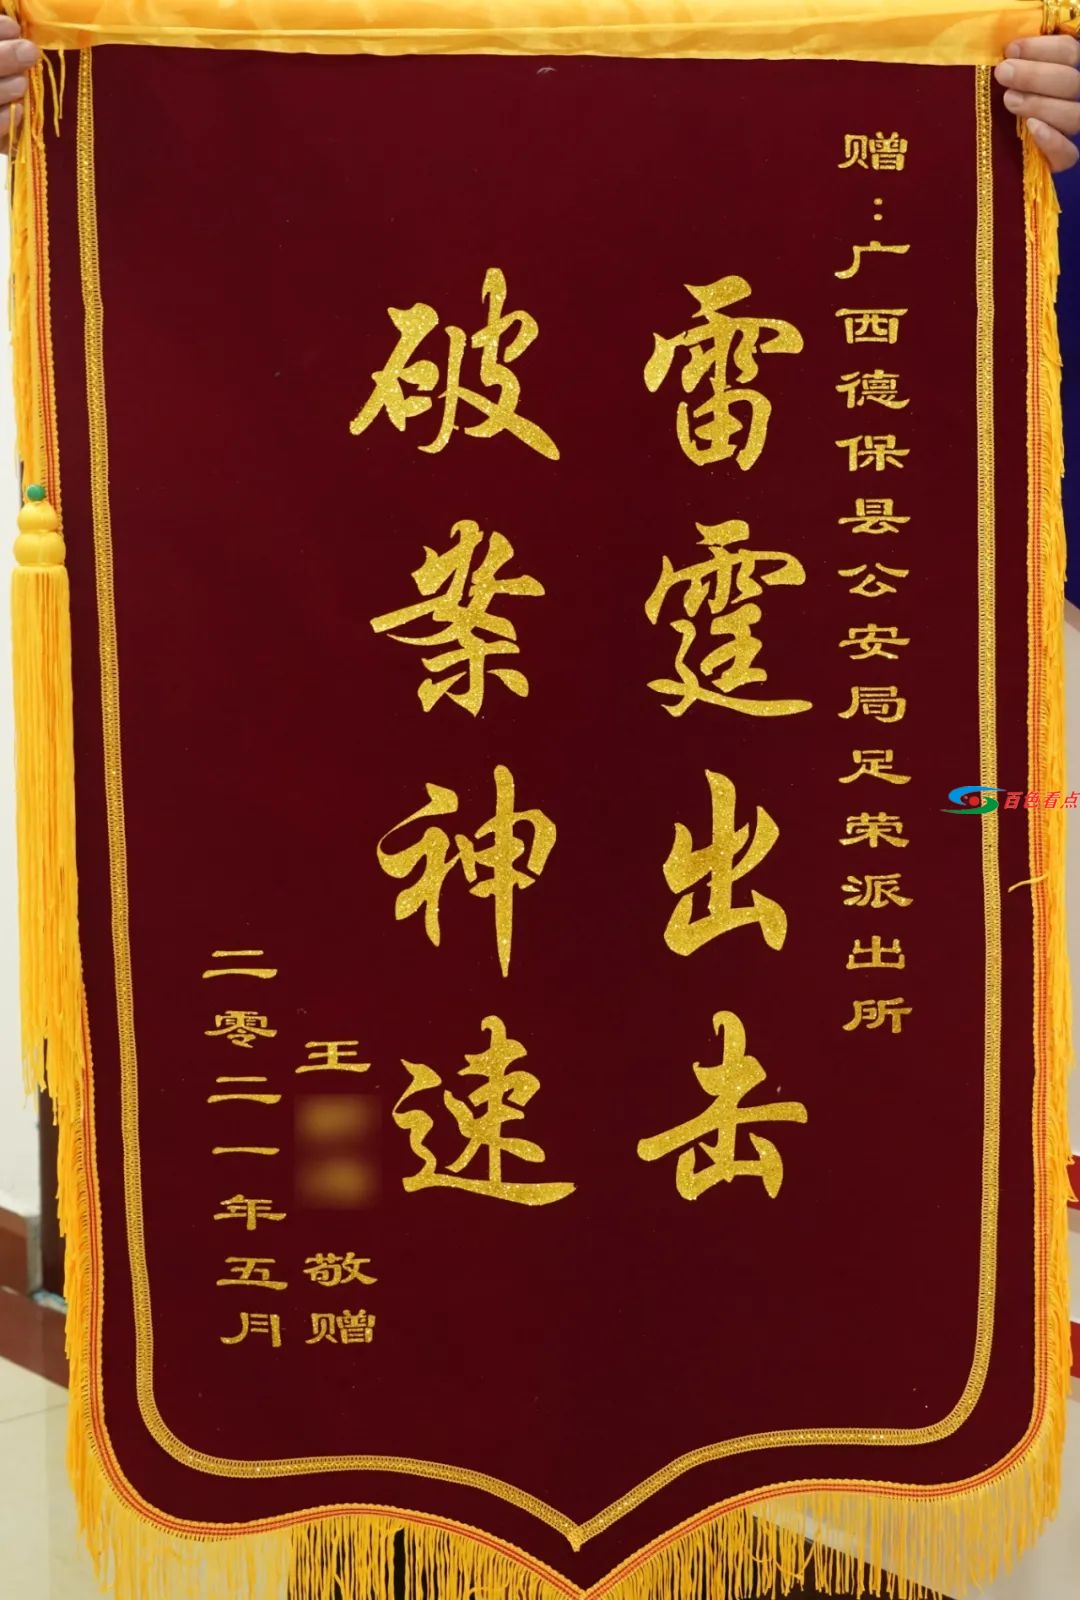 赠：广西德保县公安局足荣派出所
雷霆出击
破案神速
王
敬赠
二零二一年五月
百色看点